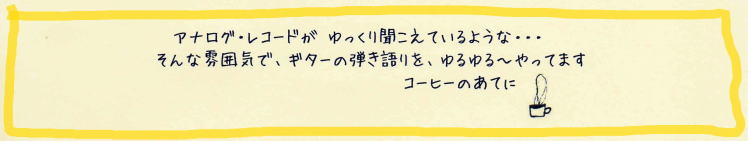 アナログ・レコードが ゆっくり聞こえているような・・・
そんな雰囲気で、ギターの弾き語りを、ゆるゆる〜やってます
コーヒーのあてに